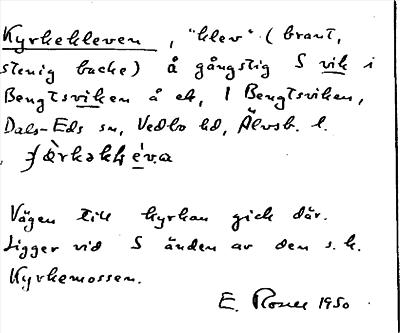 Kyrkekleven, "klev" (brant,
stenig backe) å gångstig S vik i
Bengtsviken å ek, 1 Bengtsviken,
Dals-Eds sn, Vedbo hd, Älvsb. l.

Vägen till kyrkan gick där.
Ligger vid S änden av den s. k.
Kyrkemossen.
E. 1950